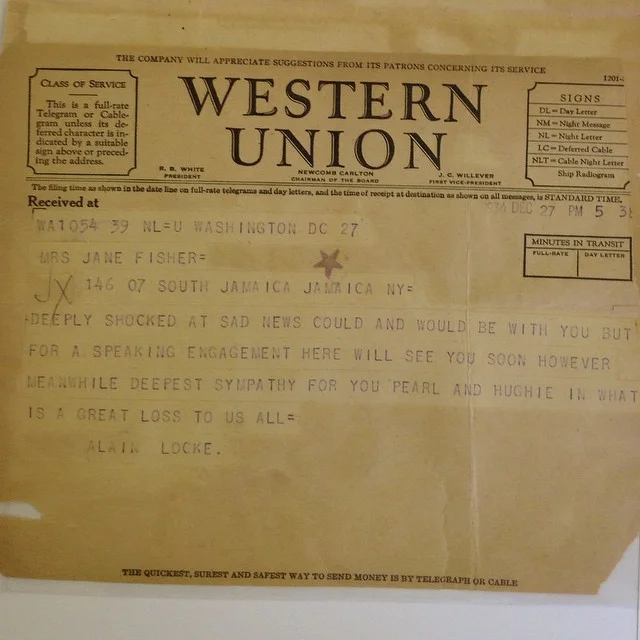 THE COMPANY WILL APPRECIATE SUGGESTIONS FROM ITS PATRONS CONCERNING ITS SERVICE
1201-
CLASS OF SERVICE
This is a full-rate
Telegram or Cable-
gram unless its de-
ferred character is in-
dicated by a suitable
sign above or preced-
ing the address.
WESTERN
UNION
R. B. WHITE
PRESIDENT
NEWCOMB CARLTON
CHAIRMAN OF THE BOARD
J. C. WILLEVER
FIRST VICE-PRESIDENT
SIGNS
DL = Day Letter
NM = Night Message
NL = Night Letter
LC = Deferred Cable
NLT = Cable Night Letter
Ship Radiogram
The filing time as shown in the date line on full-rate telegrams and day letters, and the time of receipt at destination as shown on all messages, is STANDARD TIME.
Received at
DEC 27 PM 5
WA1054 39 NL=U WASHINGTON DC 27
MINUTES IN TRANSIT
FULL-RATE
DAY LETTER
MRS JANE FISHER=
JX
146 07 SOUTH JAMAICA JAMAICA NY=
DEEPLY SHOCKED AT SAD NEWS COULD AND WOULD BE WITH YOU BUT
FOR A SPEAKING ENGAGEMENT HERE WILL SEE YOU SOON HOWEVER
MEANWHILE DEEPEST SYMPATHY FOR YOU PEARL AND HUGHIE IN WHAT
IS A GREAT LOSS TO US ALL=
ALAIN LOCKE.
THE QUICKEST, SUREST AND SAFEST WAY TO SEND MONEY IS BY TELEGRAPH OR CABLE